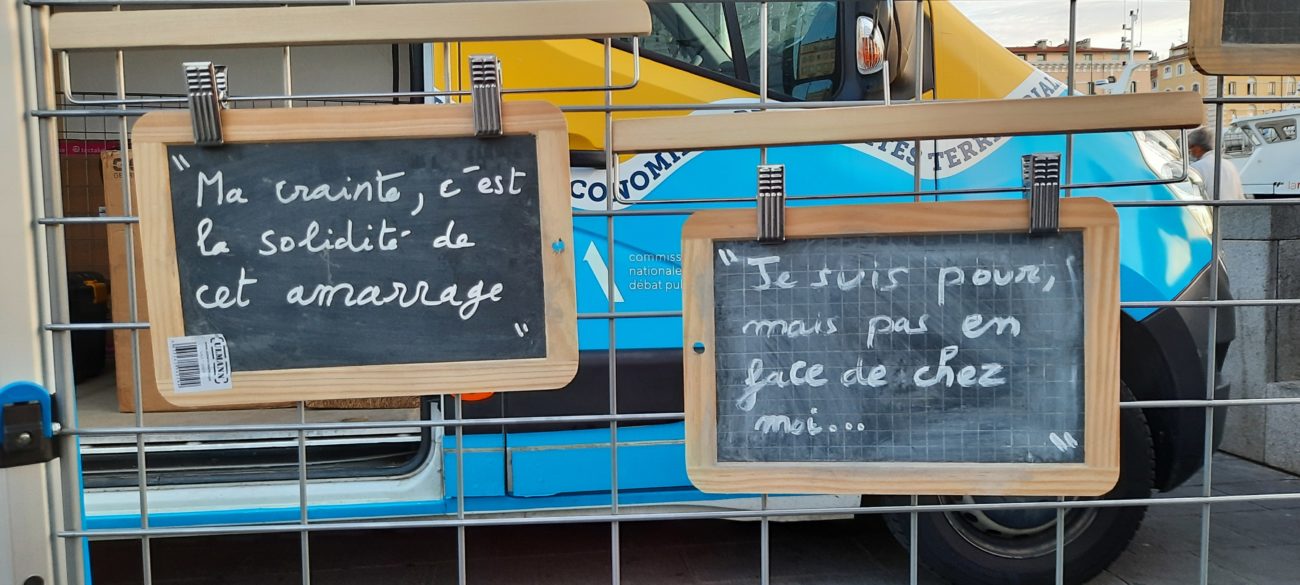 " Ma crainte, c'est
la solidité de
cet amarrage
"
ULMANN
" Je suis pour,
mais pas en
face de chez
moi...
"
CONOMI
TERR
commiss
nationale
débat pu